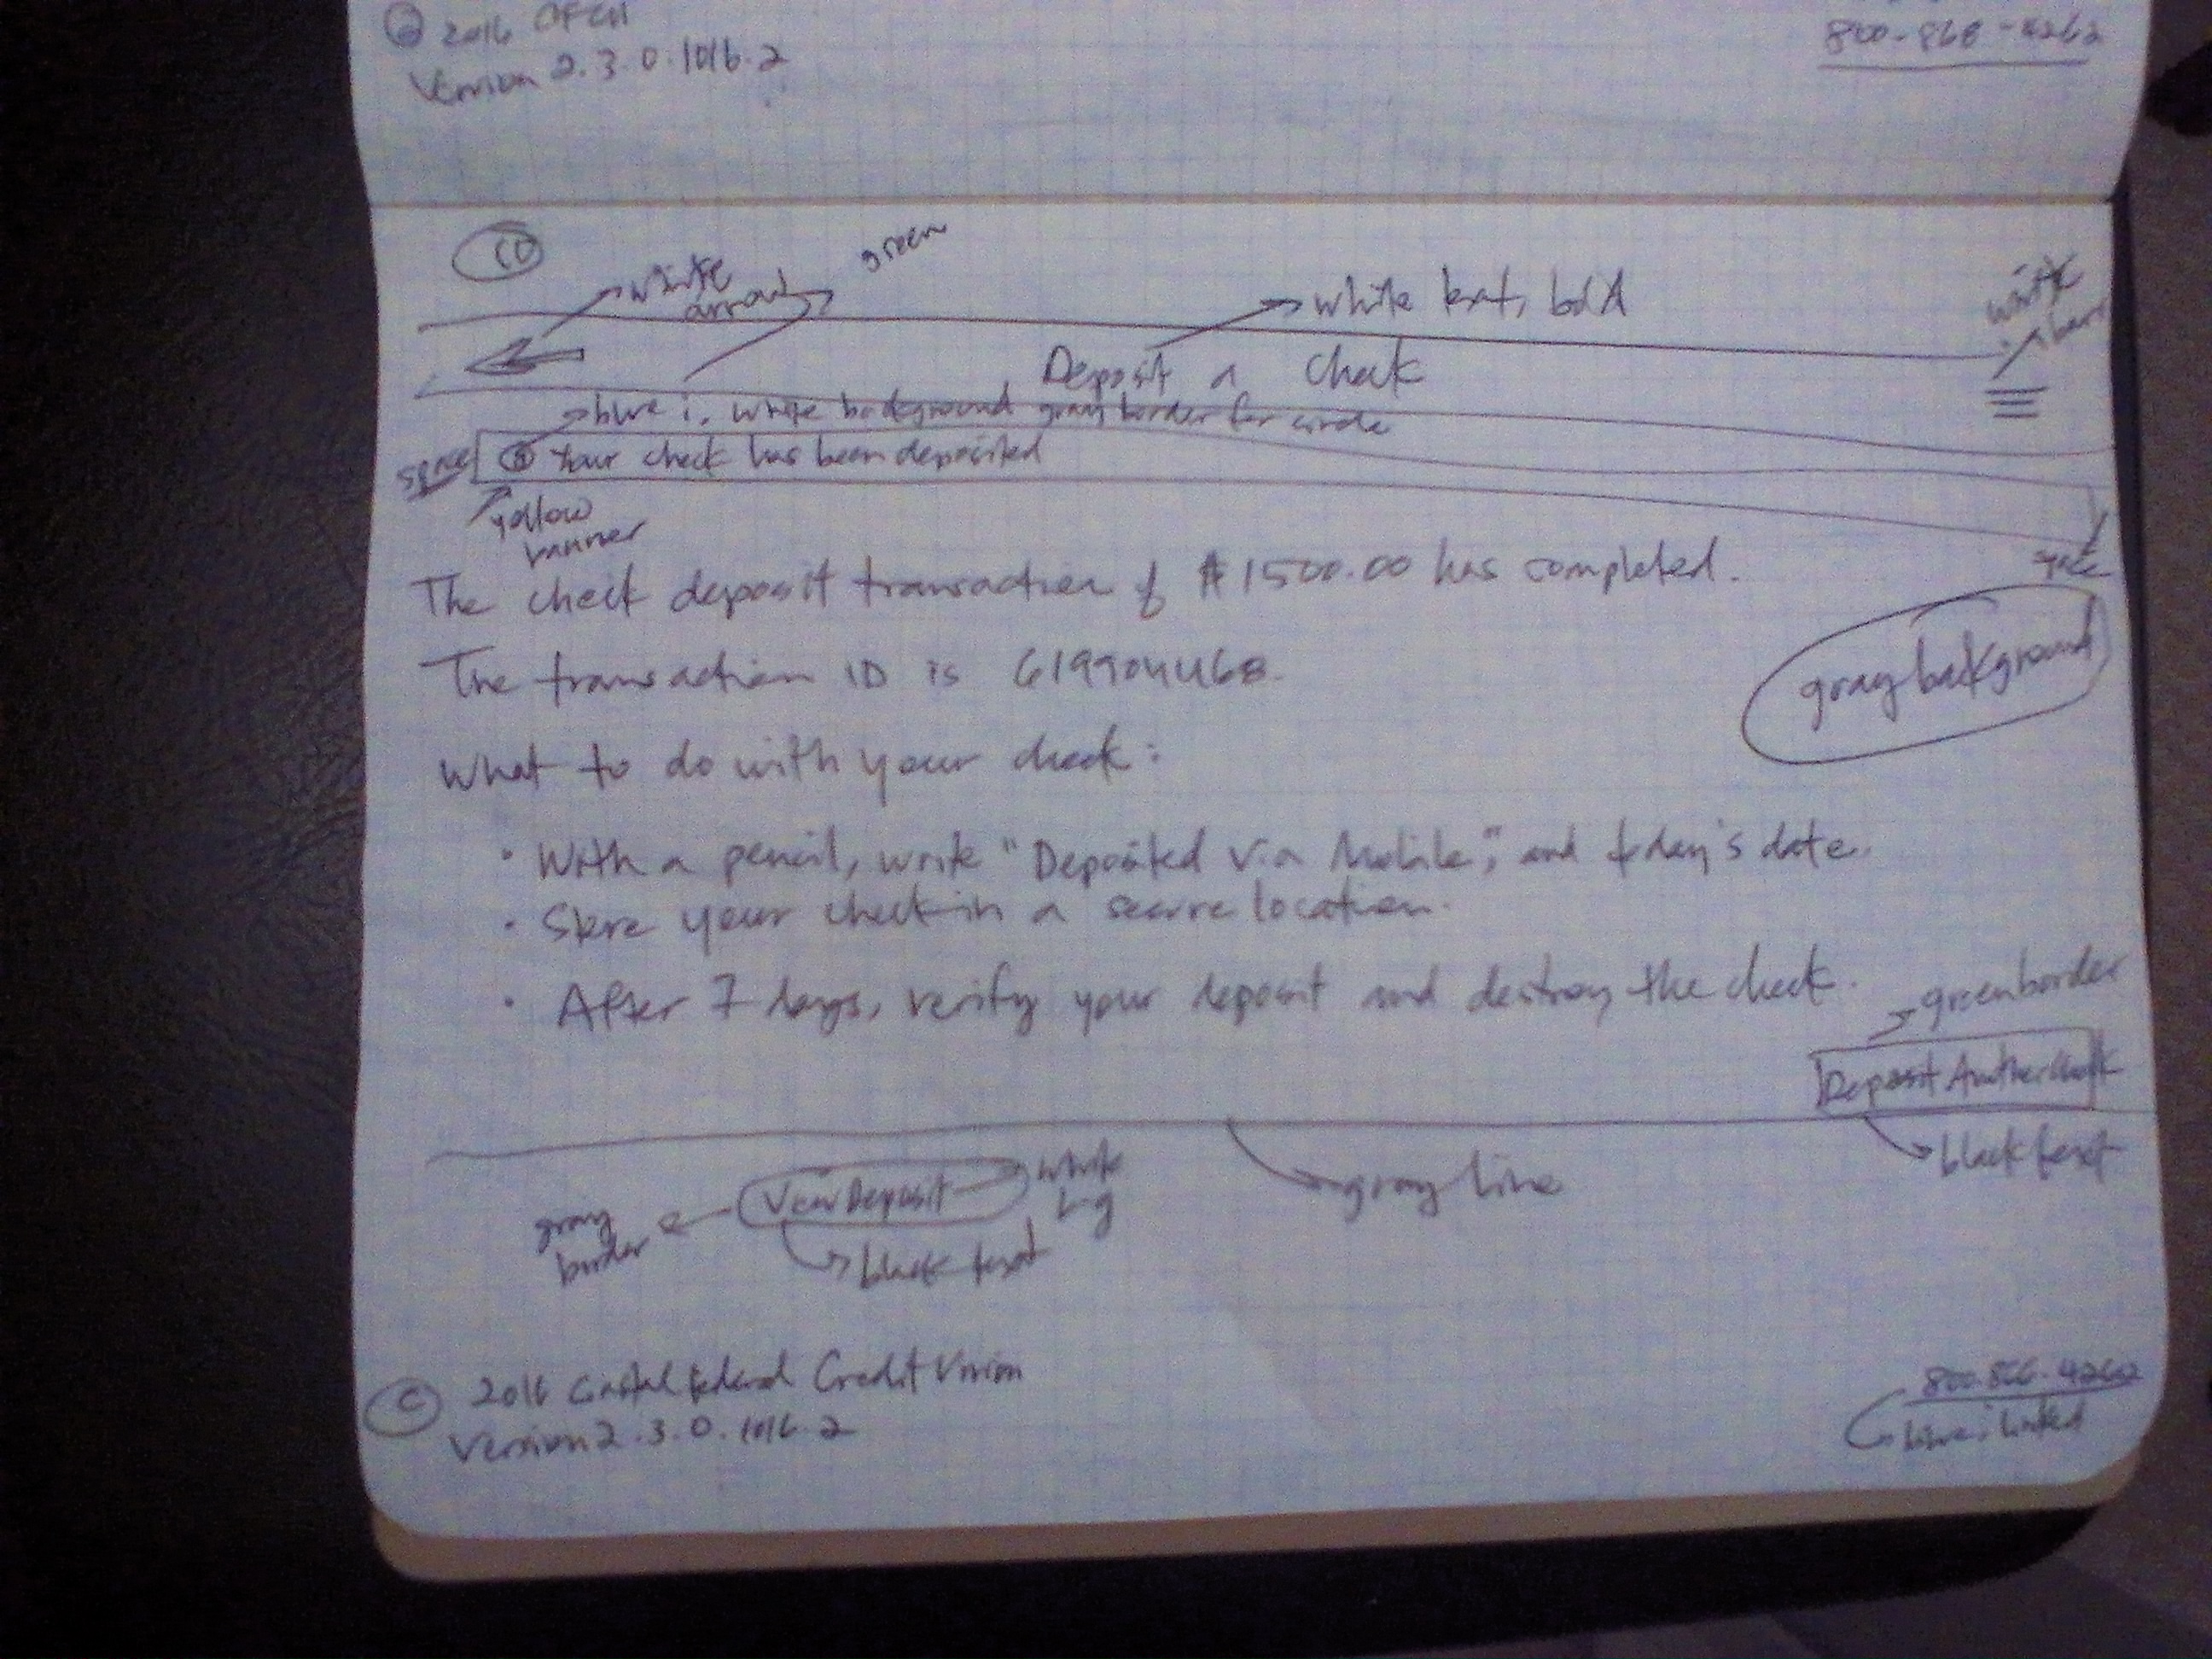 © 2016 CFCU
800-868-4262
Version 2.3.0.1016.2
10
white arrow
green
white text, bold
white bars
Deposit a Check
blue i, white background gray border for circle
space
i Your check has been deposited
yellow banner
space
The check deposit transaction of $1500.00 has completed.
gray background
The transaction ID is 619904468.
What to do with your check:
• With a pencil, write "Deposited Via Mobile", and today's date.
• Store your check in a secure location.
• After 7 days, verify your deposit and destroy the check.
green border
Deposit Another Check
black text
View Deposit
white bg
gray line
gray border
black text
© 2016 Coastal Federal Credit Union
Version 2.3.0.1016.2
800.866.4262
blue, linked